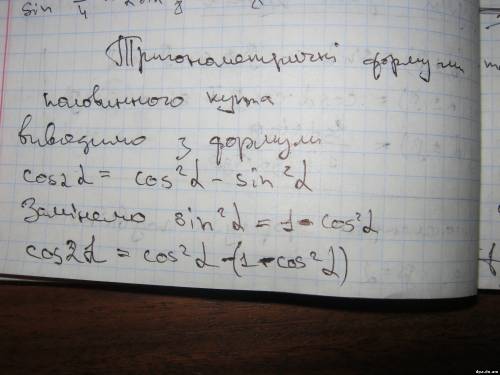 sin π/4 = 2 sin
Тригонометричні формули
половинного кута
виводимо з формули
cos2α = cos²α - sin²α
Замінемо sin²α = 1 - cos²α
cos2α = cos²α - (1 - cos²α)